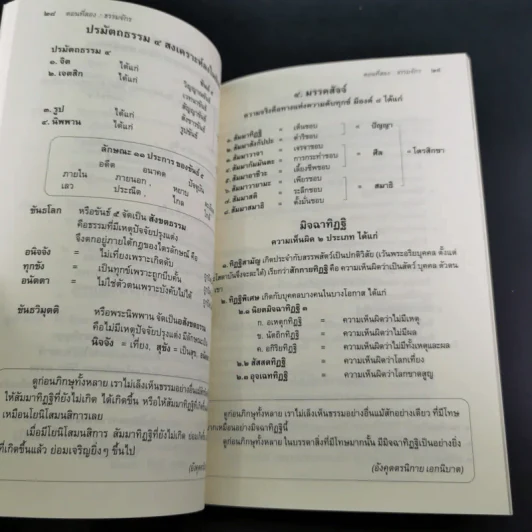 ๒๘ ตอนที่สอง : ธรรมจักร
ปรมัตถธรรม ๔ สงเคราะห์ลงใน
ปรมัตถธรรม ๔
ขันธ์ ๕
๑. จิต ได้แก่ วิญญาณขันธ์
๒. เจตสิก ได้แก่ เวทนาขันธ์
สัญญาขันธ์
สังขารขันธ์
๓. รูป ได้แก่ รูปขันธ์
๔. นิพพาน ได้แก่
ลักษณะ ๑๑ ประการ ของขันธ์ ๕
อดีต อนาคต ปัจจุบัน
ภายใน ภายนอก หยาบ
เลว ประณีต ไกล
ขันธโลก หรือขันธ์ ๕ จัดเป็น สังขตธรรม
คือธรรมที่มีเหตุปัจจัยปรุงแต่ง
จึงตกอยู่ภายใต้กฎของไตรลักษณ์ คือ
อนิจจัง = ไม่เที่ยงเพราะเกิดดับ
ทุกขัง = เป็นทุกข์เพราะถูกบีบคั้น
อนัตตา = ไม่ใช่ตัวตนเพราะบังคับไม่ได้
ขันธวิมุตติ หรือพระนิพพาน จัดเป็นอสังขตธรรม
คือไม่มีเหตุปัจจัยปรุงแต่ง มีลักษณะ
นิจจัง = เที่ยง, สุขัง = เป็นสุข,
ดูก่อนภิกษุทั้งหลาย เราไม่เล็งเห็นธรรมอย่างอื่น
ให้สัมมาทิฏฐิที่ยังไม่เกิด ได้เกิดขึ้น หรือให้สัมมาทิฏฐิที่เกิดขึ้น
เหมือนโยนิโสมนสิการเลย
เมื่อมีโยนิโสมนสิการ สัมมาทิฏฐิที่ยังไม่เกิด ย่อมเกิด
ที่เกิดขึ้นแล้ว ย่อมเจริญยิ่งๆ ขึ้นไป
ตอนที่สอง : ธรรมจักร ๒๙
๔. มรรคสัจจ์
ความจริงคือทางแห่งความดับทุกข์ มีองค์ ๘ ได้แก่
๑. สัมมาทิฏฐิ = เห็นชอบ
๒. สัมมาสังกัปปะ = ดำริชอบ
= ปัญญา
๓. สัมมาวาจา = เจรจาชอบ
๔. สัมมากัมมันตะ = การกระทำชอบ
๕. สัมมาอาชีวะ = เลี้ยงชีพชอบ
= ศีล = ไตรสิกขา
๖. สัมมาวายามะ = เพียรชอบ
๗. สัมมาสติ = ระลึกชอบ
๘. สัมมาสมาธิ = ตั้งมั่นชอบ
= สมาธิ
มิจฉาทิฏฐิ
ความเห็นผิด ๒ ประเภท ได้แก่
๑. ทิฏฐิสามัญ เกิดประจำกับสรรพสัตว์เป็นปกติวิสัย (เว้นพระอริยบุคคล ตั้งแต่
โสดาบันจึงจะละได้) เรียกว่าสักกายทิฏฐิ คือ ความเห็นผิดว่าเป็นสัตว์ บุคคล ตัวตน
เรา
๒. ทิฏฐิพิเศษ เกิดกับบุคคลบางคนในบางโอกาส ได้แก่
๒.๑ นิยตมิจฉาทิฏฐิ ๓
ก. อเหตุกทิฏฐิ = ความเห็นผิดว่าไม่มีเหตุ
ข. นัตถิกทิฏฐิ = ความเห็นผิดว่าไม่มีผล
ค. อกิริยทิฏฐิ = ความเห็นผิดว่าไม่มีทั้งเหตุและผล
๒.๒ สัสสตทิฏฐิ = ความเห็นผิดว่าโลกเที่ยง
๒.๓ อุจเฉททิฏฐิ = ความเห็นผิดว่าโลกขาดสูญ
ดูก่อนภิกษุทั้งหลาย เราไม่เล็งเห็นธรรมอย่างอื่นแม้สักอย่างเดียว ที่มีโทษ
มากเหมือนอย่างมิจฉาทิฏฐินี้
ดูก่อนภิกษุทั้งหลาย ในบรรดาสิ่งที่มีโทษมากนั้น มีมิจฉาทิฏฐิเป็นอย่างยิ่ง
(อังคุตตรนิกาย เอกนิบาต)